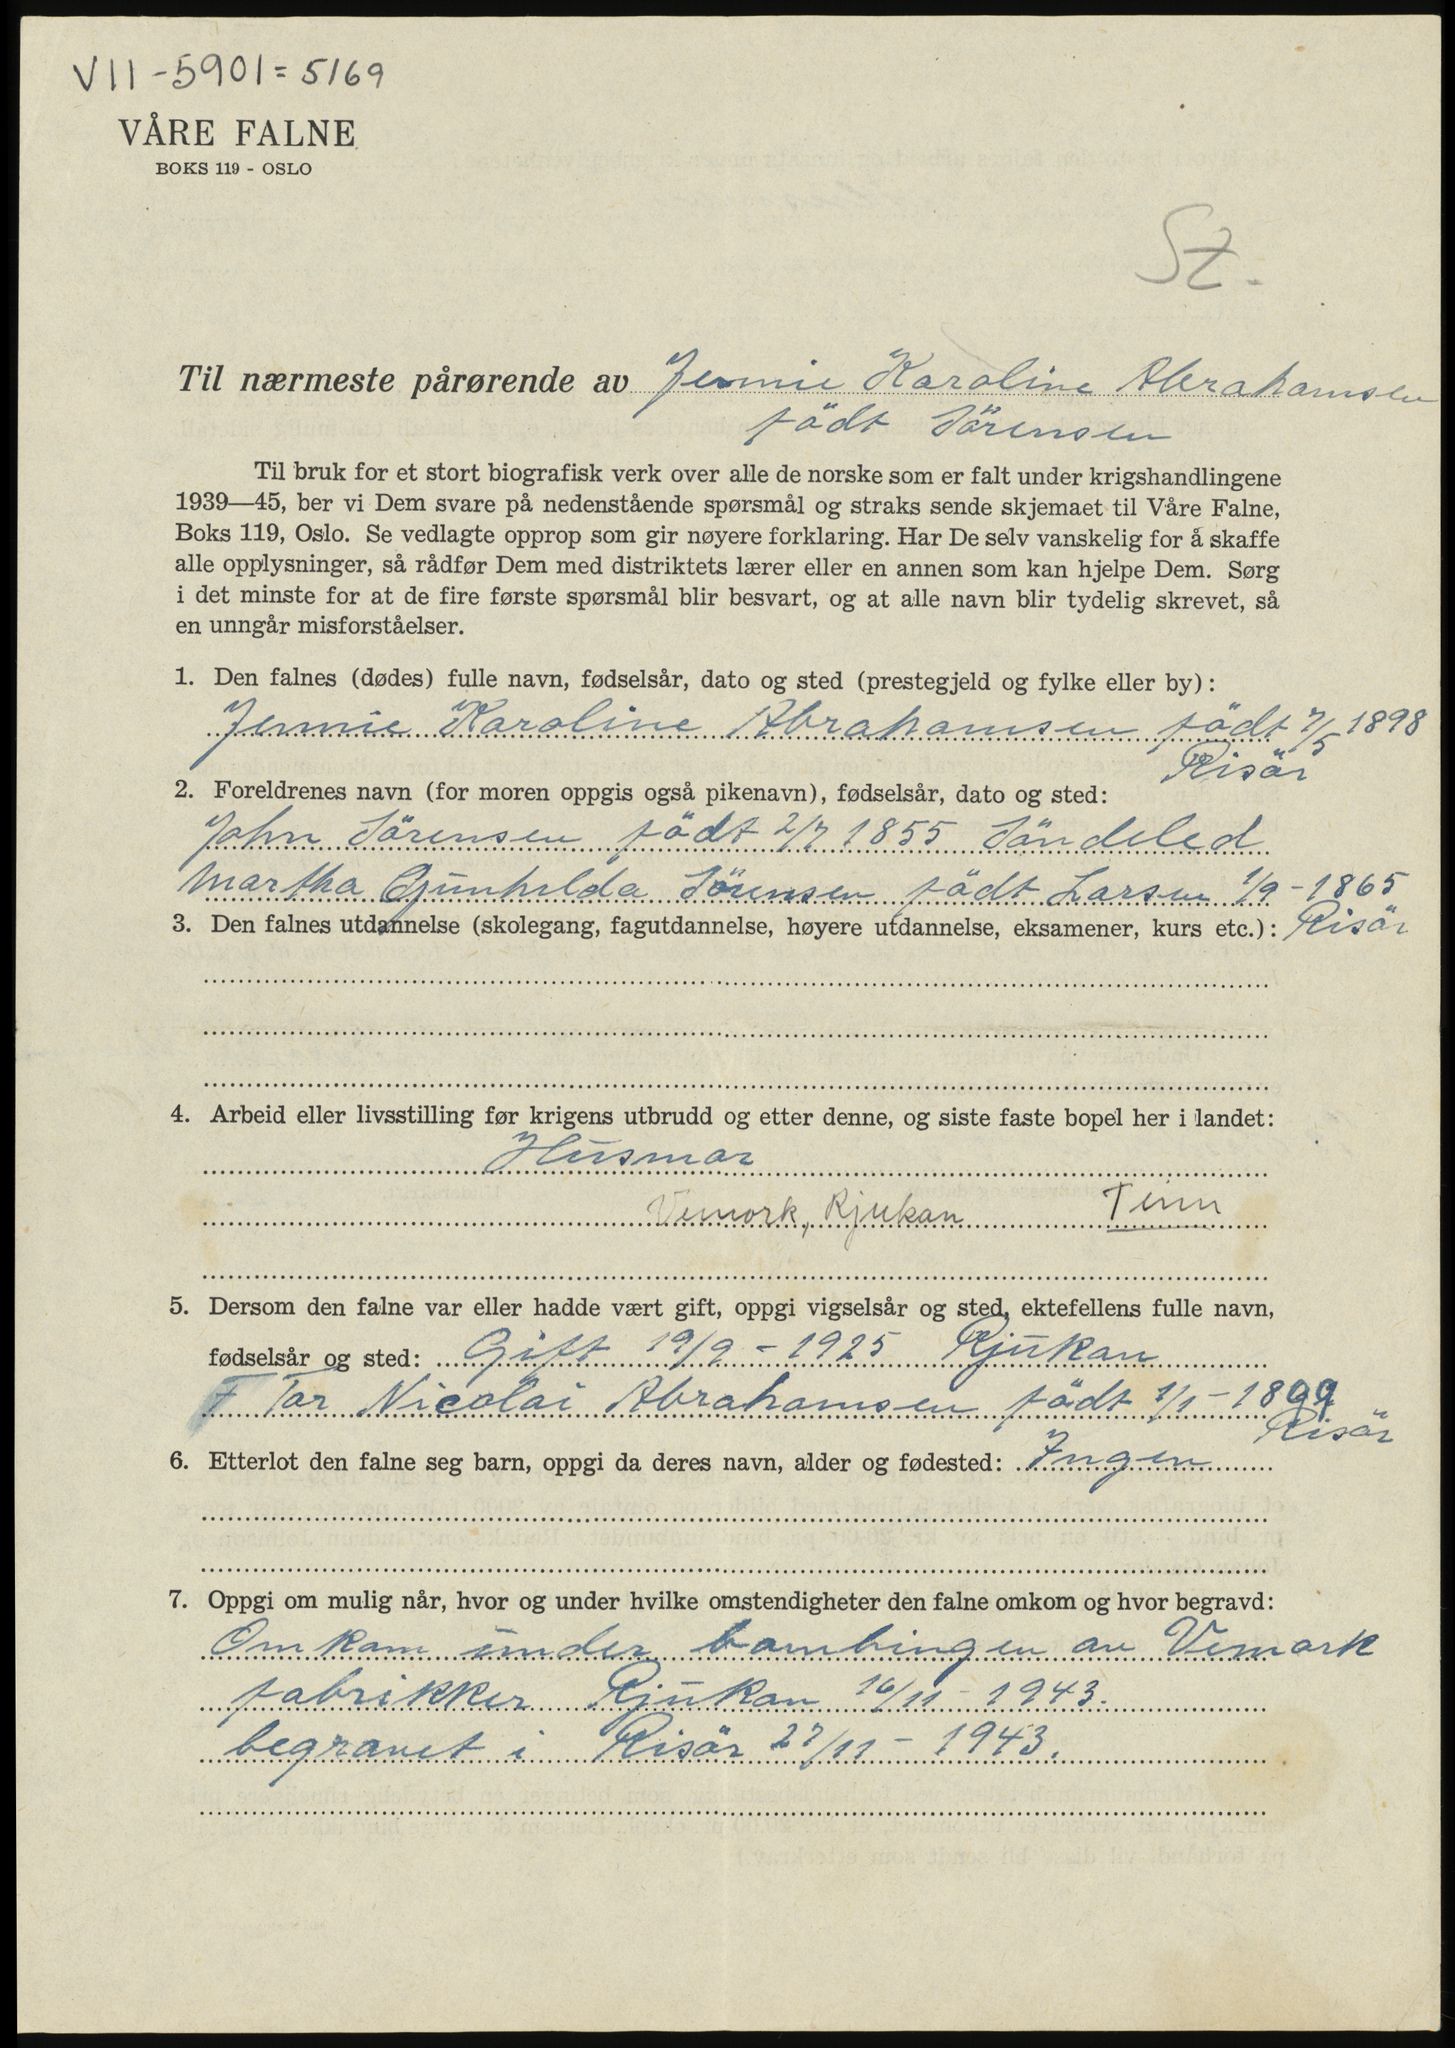 VII-5901=5169
VÅRE FALNE
BOKS 119 - OSLO
St.
Til nærmeste pårørende av Jennie Karoline Abrahamsen
födt Sörensen
Til bruk for et stort biografisk verk over alle de norske som er falt under krigshandlingene
1939—45, ber vi Dem svare på nedenstående spørsmål og straks sende skjemaet til Våre Falne,
Boks 119, Oslo. Se vedlagte opprop som gir nøyere forklaring. Har De selv vanskelig for å skaffe
alle opplysninger, så rådfør Dem med distriktets lærer eller en annen som kan hjelpe Dem. Sørg
i det minste for at de fire første spørsmål blir besvart, og at alle navn blir tydelig skrevet, så
en unngår misforståelser.
1. Den falnes (dødes) fulle navn, fødselsår, dato og sted (prestegjeld og fylke eller by):
Jennie Karoline Abrahamsen födt 7/5 1898
Risör
2. Foreldrenes navn (for moren oppgis også pikenavn), fødselsår, dato og sted:
John Sörensen födt 2/7 1855 Söndeled
Martha Gunhilda Sörensen födt Larsen 1/9-1865
3. Den falnes utdannelse (skolegang, fagutdannelse, høyere utdannelse, eksamener, kurs etc.): Risör
4. Arbeid eller livsstilling før krigens utbrudd og etter denne, og siste faste bopel her i landet:
Husmor
Vemork, Rjukan Tinn
5. Dersom den falne var eller hadde vært gift, oppgi vigselsår og sted, ektefellens fulle navn,
fødselsår og sted: Gift 19/9-1925 Rjukan
F Tor Nicolai Abrahamsen födt 1/1-1899
Risör
6. Etterlot den falne seg barn, oppgi da deres navn, alder og fødested: Ingen
7. Oppgi om mulig når, hvor og under hvilke omstendigheter den falne omkom og hvor begravd:
Omkom under bombingen av Vemork
fabrikker Rjukan 16/11-1943.
begravet i Risör 27/11-1943.